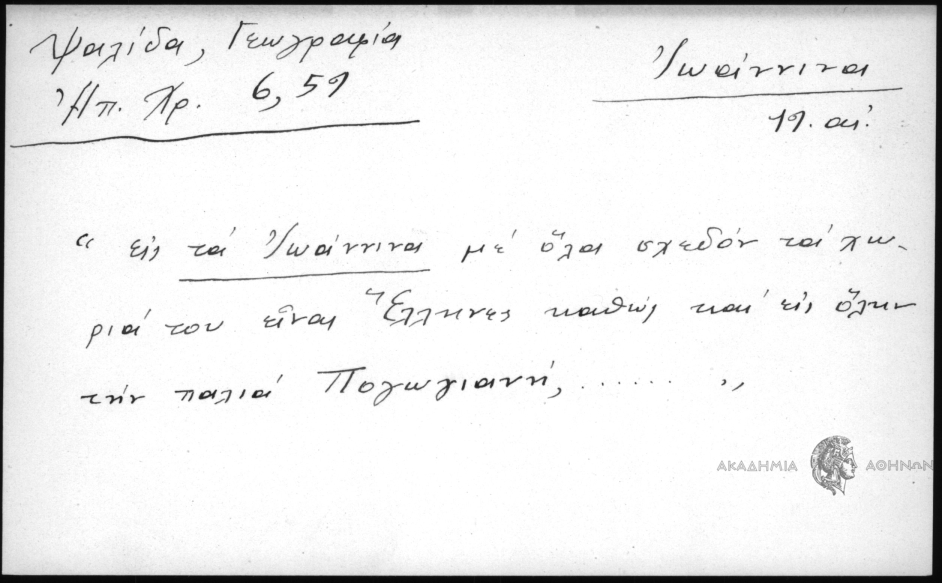 Ψαλίδα, Γεωγραφία
Ἠπ. Χρ. 6, 59
Ἰωάννινα
19. αἰ.
“ εἰς τά Ἰωάννινα μέ ὅλα σχεδόν τά χω-
ριά του εἶναι Ἕλληνες καθώς καί εἰς ὅλην
τήν παλιά Πωγωγιαννή, ...... „
ΑΚΑΔΗΜΙΑ ΑΘΗΝΩΝ